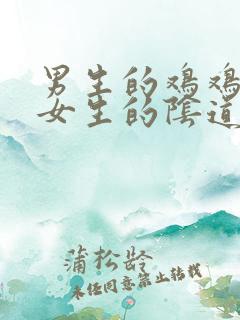 男生的鸡鸡
女生的陰道
蒲松龄
未经同意禁止转载